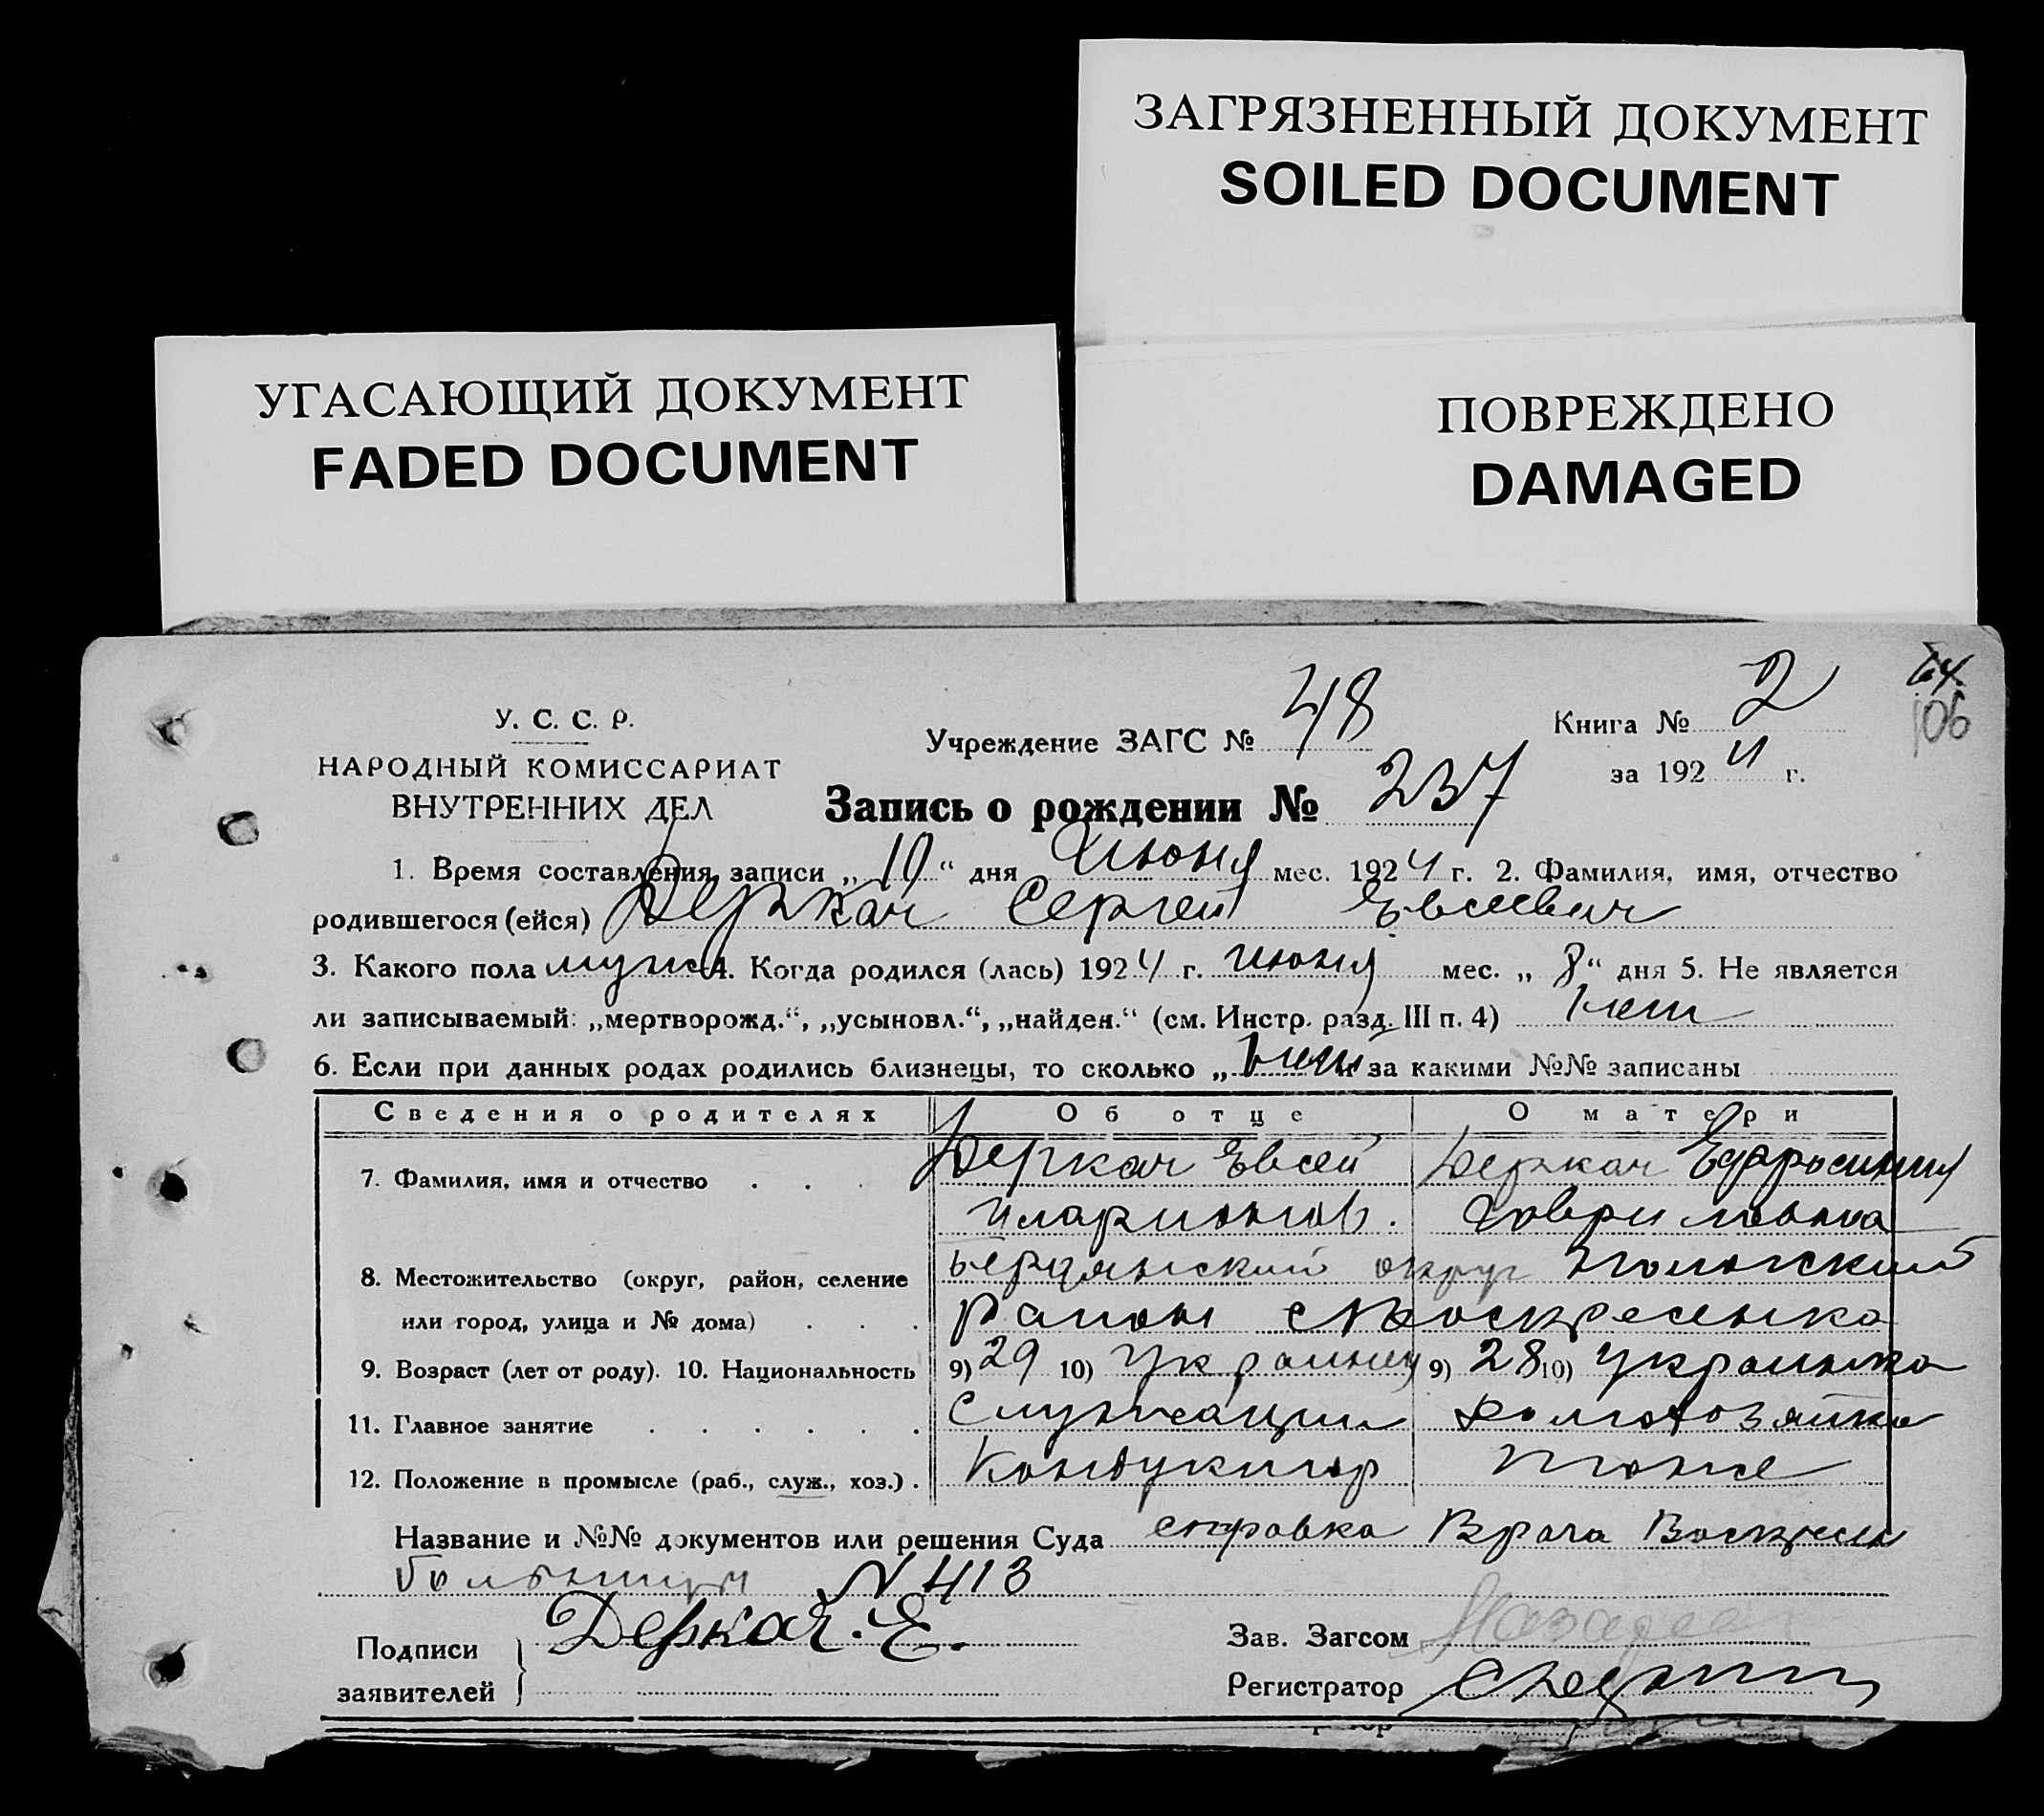 ЗАГРЯЗНЕННЫЙ ДОКУМЕНТ
SOILED DOCUMENT
УГАСАЮЩИЙ ДОКУМЕНТ
FADED DOCUMENT
ПОВРЕЖДЕНО
DAMAGED
64.
106
У. С. С. Р.
НАРОДНЫЙ КОМИССАРИАТ
ВНУТРЕННИХ ДЕЛ
Учреждение ЗАГС № 48
Книга № 2
за 1924 г.
Запись о рождении № 237
1. Время составления записи „10“ дня Июня мес. 1924 г. 2. Фамилия, имя, отчество
родившегося (ейся) Деркач Сергей Евсеевич
3. Какого пола муж 4. Когда родился (лась) 1924 г. июня мес. „8“ дня 5. Не является
ли записываемый: „мертворожд.“, „усыновл.“, „найден.“ (см. Инстр. разд. III п. 4) нет
6. Если при данных родах родились близнецы, то сколько „нет и за какими №№ записаны
Сведения о родителях Об отце О матери
7. Фамилия, имя и отчество . . . Деркач Евсей Деркач Ефросиния
Иларионов. Гавриловна
8. Местожительство (округ, район, селение Бердянский округ Пологский
или город, улица и № дома) . . . район с Воскресенка
9. Возраст (лет от роду). 10. Национальность 9) 29 10) Украинец 9) 28 10) Украинка
11. Главное занятие . . . . . . Служащий домохозяйка
12. Положение в промысле (раб., служ., хоз.) . Кондуктор тоже
Название и №№ документов или решения Суда справка Врача Воскресен
больницы N 413
Подписи заявителей Деркач. Е.
Зав. Загсом
Регистратор